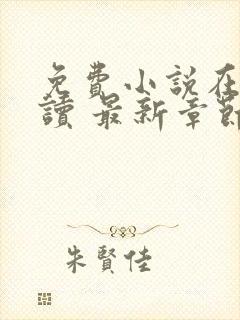 免費小說在
讀 最新章節
朱賢佳